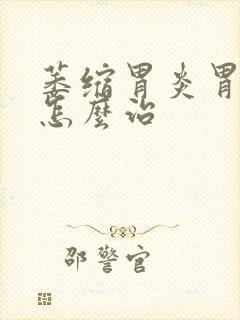 萎缩胃炎胃
怎麼治
邵警官